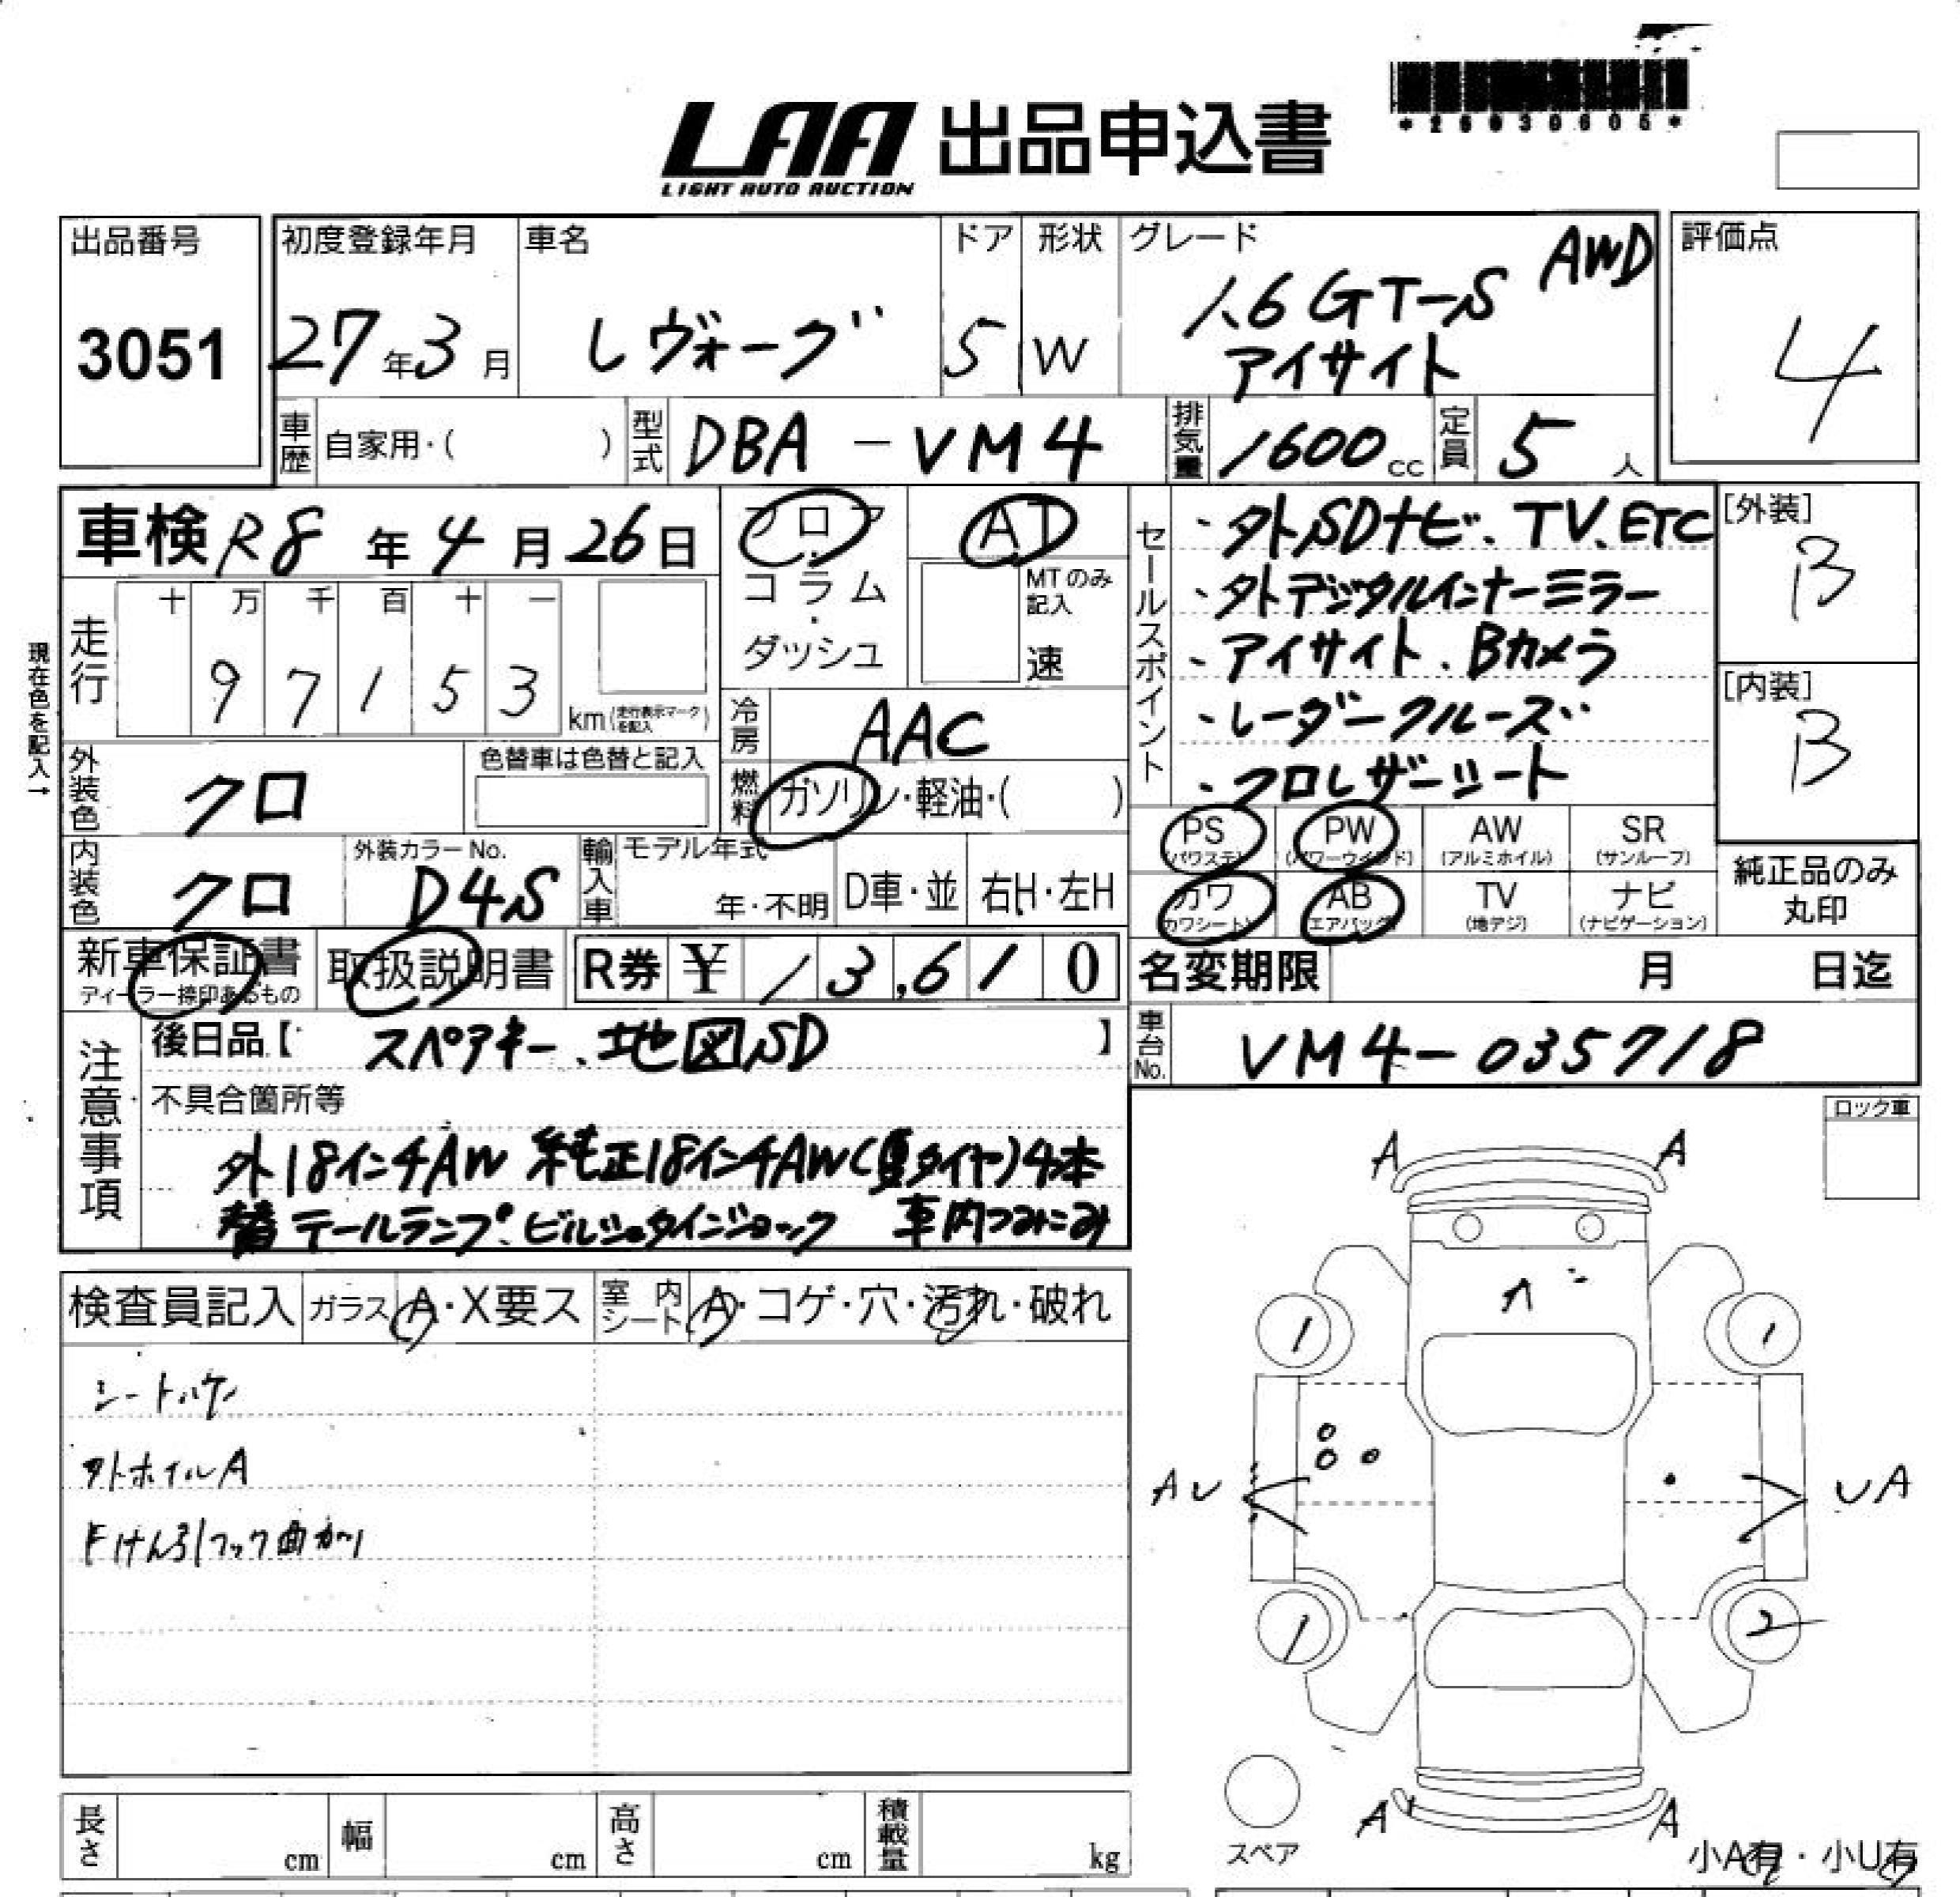 *26030605*
LAA 出品申込書
LIGHT AUTO AUCTION
出品番号
3051
初度登録年月
27年3月
車名
レヴォーグ
ドア
5
形状
W
グレード
1.6 GT-S AWD
アイサイト
評価点
4
車歴 自家用・( )
型式 DBA-VM4
排気量 1600cc
定員 5人
車検 R8年4月26日
フロア・コラム・ダッシュ
AT
MTのみ記入
速
現在色を記入→
走行
十 万 千 百 十 一
9 7 1 5 3
km(走行表示マークを記入)
冷房 AAC
燃料 ガソリン・軽油・( )
外装色 クロ
色替車は色替と記入
内装色 クロ
外装カラーNo.
D4S
輸入車
モデル年式
年・不明
D車・並
右H・左H
セールスポイント
・外SDナビ、TV、ETC
・外デジタルインナーミラー
・アイサイト、Bカメラ
・レーダークルーズ
・クロレザーシート
[外装]
B
[内装]
B
PS (パワステ)
PW (パワーウィンド)
AW (アルミホイル)
SR (サンルーフ)
カワ (カワシート)
AB (エアバッグ)
TV (地デジ)
ナビ (ナビゲーション)
純正品のみ丸印
新車保証書
ディーラー捺印あるもの
取扱説明書
R券 ¥13,610
名変期限 月 日迄
車台No. VM4-035718
注意事項
後日品【 スペアキー、地図SD 】
不具合箇所等
外18インチAW 純正18インチAW(夏タイヤ)4本
替テールランプ、ビルシュタインショック 車内つみこみ
ロック車
検査員記入
ガラス A・X要ス
室内シート A・コゲ・穴・汚れ・破れ
シートハゲ
外ホイルA
Fけん引フック曲がり
A A
1 1
AU UA
1 2
A A
スペア
小A有・小U有
長さ cm
幅 cm
高さ cm
積載量 kg